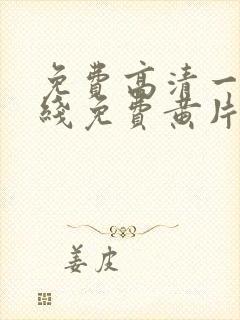 免费高清一
线免费黄片
姜皮